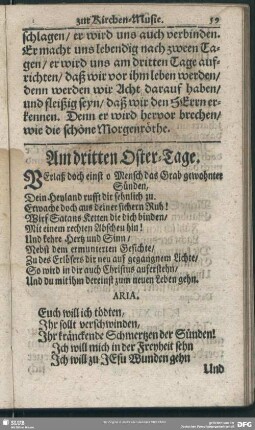 zur Kirchen-Music. 59
schlagen/ er wird uns auch verbinden.
Er macht uns lebendig nach zween Ta-
gen/ er wird uns am dritten Tage auf-
richten/ daß wir vor ihm leben werden/
denn werden wir Acht darauf haben/
und fleißig seyn/ daß wir den HErrn er-
kennen. Denn er wird hervor brechen/
wie die schöne Morgenröthe.
Am dritten Oster-Tage.
VErlaß doch einst o Mensch das Grab gewohnter
Sünden,
Dein Heyland rufft dir sehnlich zu.
Erwache doch aus deiner sichern Ruh!
Wirf Satans Ketten die dich binden/
Mit einem rechten Abscheu hin!
Und kehre Hertz und Sinn/
Nebst dem ermunterten Gesichte/
Zu des Erlösers dir neu aufgegangnem Lichte/
So wird in dir auch Christus auferstehn/
Und du mit ihm dereinst zum neuen Leben gehn.
ARIA.
Euch will ich tödten,
Ihr sollt verschwinden,
Ihr kränckende Schmertzen der Sünden!
Ich will mich in der Freyheit sehn
Ich will zu JEsu Wunden gehn
Und
SLUB
DFG